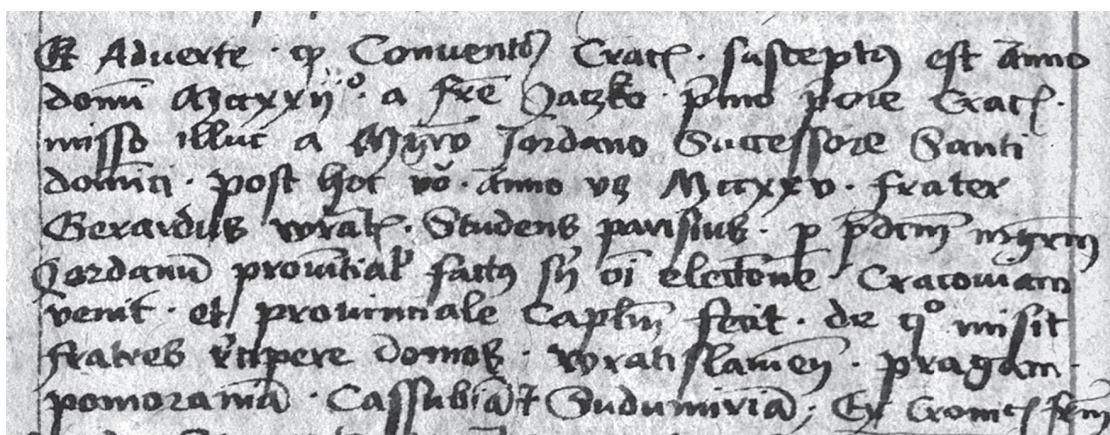 Et Aduerte · ꝙ Conuentꝰ Cracͦ · susceptꝰ est āno
domī Mccxxijͦ · a fr̄e Jaczko · pͥmo pͥore Cracͦ ·
misso illuc a Mgr̄o Jordano Successore Santi
domīci · post hoc vͦo · anno vꝫ Mccxxv · frater
Gerardus wratͦ · Studens parisius · ꝑ p̄dcm̄ mgrm̄
Jordanū prouīcial' factꝰ sn̄ oī electōne Cracouiam
venit · et prouinciale Capl̄m fecit · de qͦ misit
fratres recipere domos · wratislauien̄ · pragam ·
pomoraniā · Cassubiā et Sudimiriā ; Ex Cronicͦ frm̄